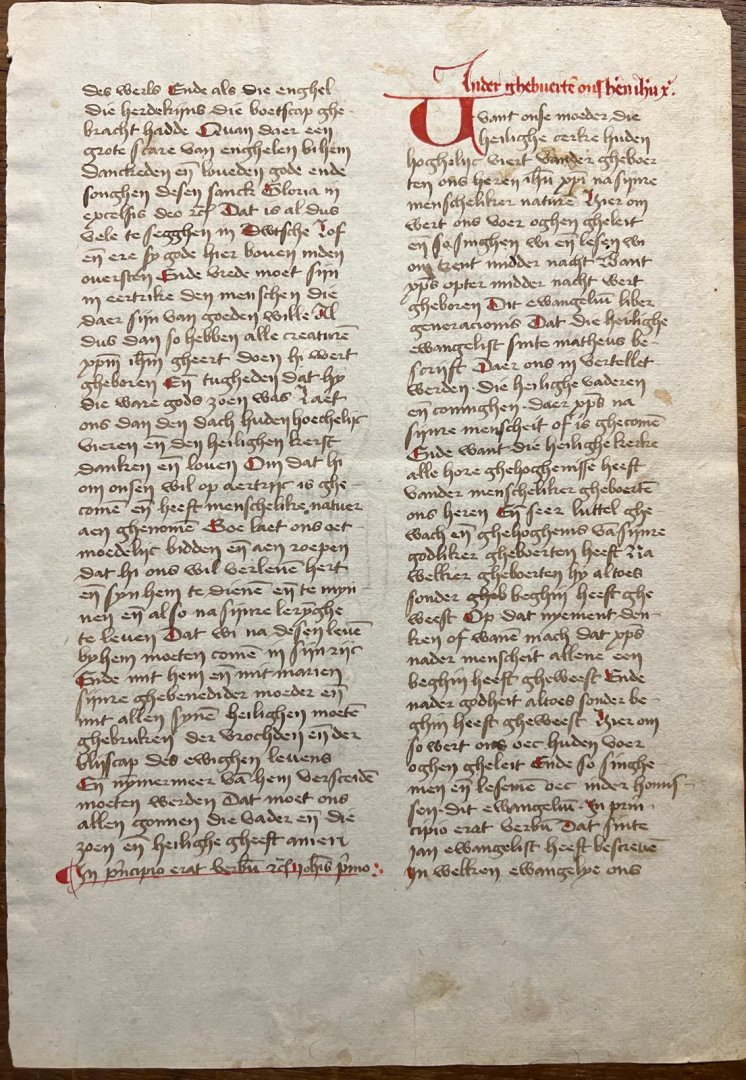 des werls Ende als die enghel
die herdekijns die boetscap ghe
bracht hadde Quan daer een
grote scare van enghelen bi hem
danckeden en̄ loueden gode ende
songhen desen sanck Gloria in
excelsis deo rc̄ Dat is al dus
vele te segghen in Dwtsche Lof
en̄ ere sy gode hier bouen inden
ouersten Ende vrede moet sijn
in eertrike den menschen die
daer sijn van goeden wille Al
dus dan so hebben alle creaturē
xpm̄ ihm̄ gheert doen hi wert
gheboren En̄ tugheden dat hy
die ware gods zoen was Laet
ons dan den dach huden hoechelijc
vieren en̄ den heilighen kerst
danken en̄ louen Om dat hi
om onsen wil op aertrijc is ghe
comē en̄ heeft menschelike natuer
aen ghenomē Goe laet ons oet
moedelijc bidden en̄ aen roepen
dat hi ons wil verleuē hert
en̄ syn hem te dienē en̄ te myn
nen en̄ al so na sijnre leryghe
te leuen Dat wi na desen leuē
by hem moeten comē in sijn rijc
Ende mit hem en̄ mit marien
sijnre ghebenedider moeder en̄
mit allen synē heilighen moetē
ghebruken der vrochden en̄ der
blijscap des ewighen leuens
En̄ nymermeer vā hem versceidē
moeten werden Dat moet ons
allen gonnen die vader en̄ die
zoen en̄ heilighe gheest amen
In pⁱncipio erat verbū rc̄ iohīs pⁱmo
Inder ghebuertē ons hēn ihū xⁱ.
Uvant onse moeder die
heilighe cerke huden
hoghelijc viert vander gheboer
ten ons heren ihū xpī na sijnre
menscheliker nature Hier om
wert ons voer oghen gheleit
en̄ so singhen wi en̄ lesen wi
on vent midder nacht Want
xps̄ opter midder nacht wert
gheboren Dit ewangeliū liber
generacionis Dat die heilighe
ewangelist sinte matheus be
scrijft Daer ons in vertellet
werden die heilighe vaderen
en̄ coninghen daer xps̄ na
sijnre menscheit of is ghecomē
Ende want die heilighe kerke
alle hore ghehoghenisse heeft
vander menscheliker gheboertē
ons heren En̄ seer luttel ghe
wach en̄ ghehoghenis vā sijnre
godliker gheboerten heeft Na
welkier gheboerten hy altoes
sonder gheb beghin heeft ghe
weest Op dat nyement den
ken of wanē mach dat xps̄
nader menscheit allene een
beghin heeft gheweest Ende
nader godheit altoes sonder be
ghin heeft gheweest Hier om
so wert ons oec huden voer
oghen gheleit Ende so singhe
men en̄ lesemē oec inder homis
sen dit ewangeliū In prin
cipio erat verbū Dat sinte
ian ewangelist heeft bescreuē
In welken ewangelye ons